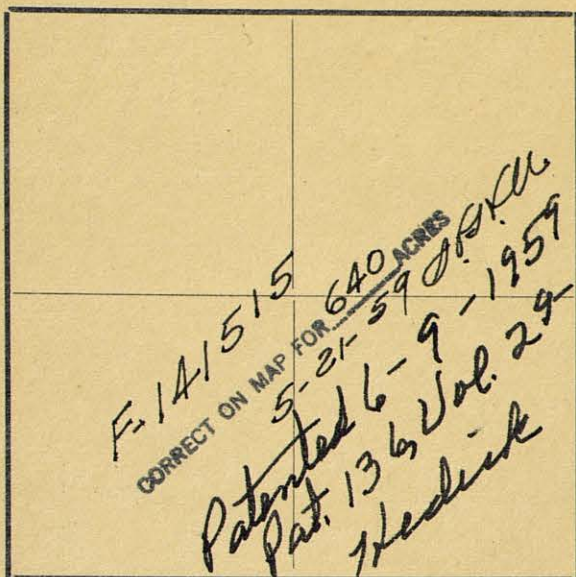 F-141515
CORRECT ON MAP FOR 640 ACRES
5-21-59
Patented 6-9-1959
Pat. 136 Vol. 29-
Hedick